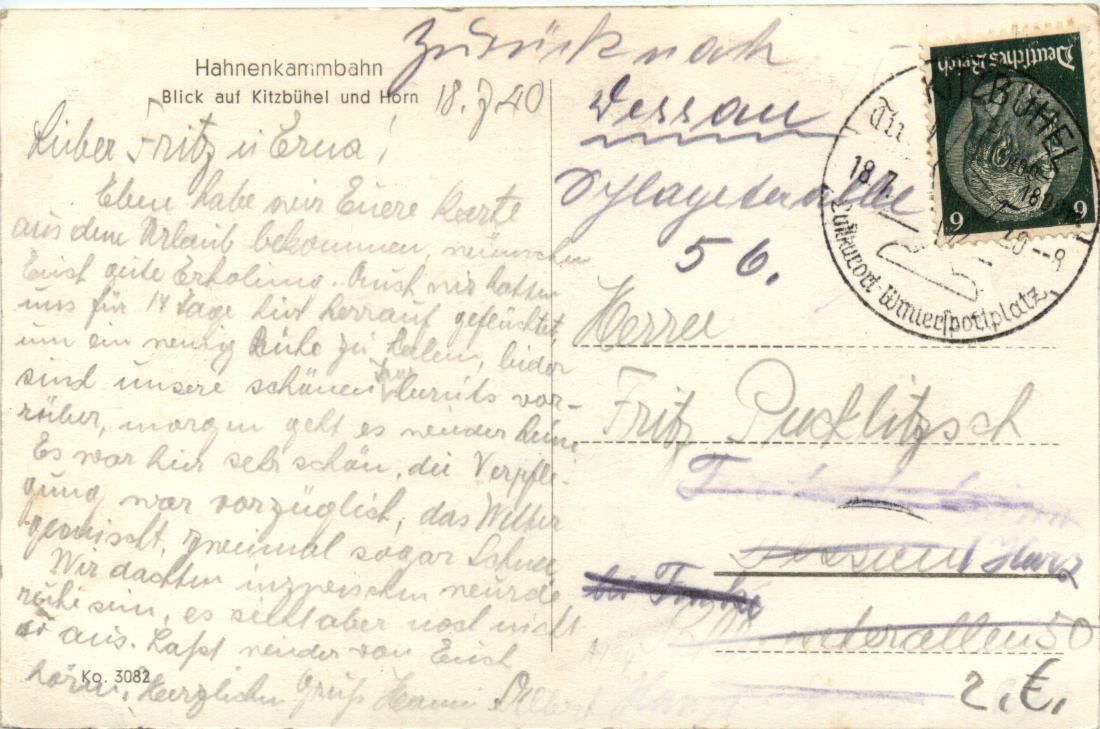 Hahnenkammbahn
Blick auf Kitzbühel und Horn
18.7.40
Lieber Fritz u Erna!
Eben habe wir Euere Karte
aus dem Urlaub bekommen, wünschen
Euch gute Erholung. Auch wir hatten
uns für 14 Tage hier herrauf geflüchtet,
um ein wenig Ruhe zu haben, leider
sind unsere schönen bereits vor-
rüber, morgen geht es wieder heim
Es war hier sehr schön, die Verpfle-
gung war vorzüglich, das Wetter
gemischt, zweimal sogar Schnee
Wir dachten inzwischen würde
ruhe sein, es sieht aber noch nicht
so aus. Lasst wieder von Euch
hören. Herzlichen Gruß Hanni Albert
Ko. 3082
Zurück nach
Dessau
56.
Herrn
Fritz Pucklitzsch
Harz
bei
50
2.€.
Deutsches Reich
6 6
KITZBÜHEL
18.7.
40--8
Luftkurort Wintersportplatz